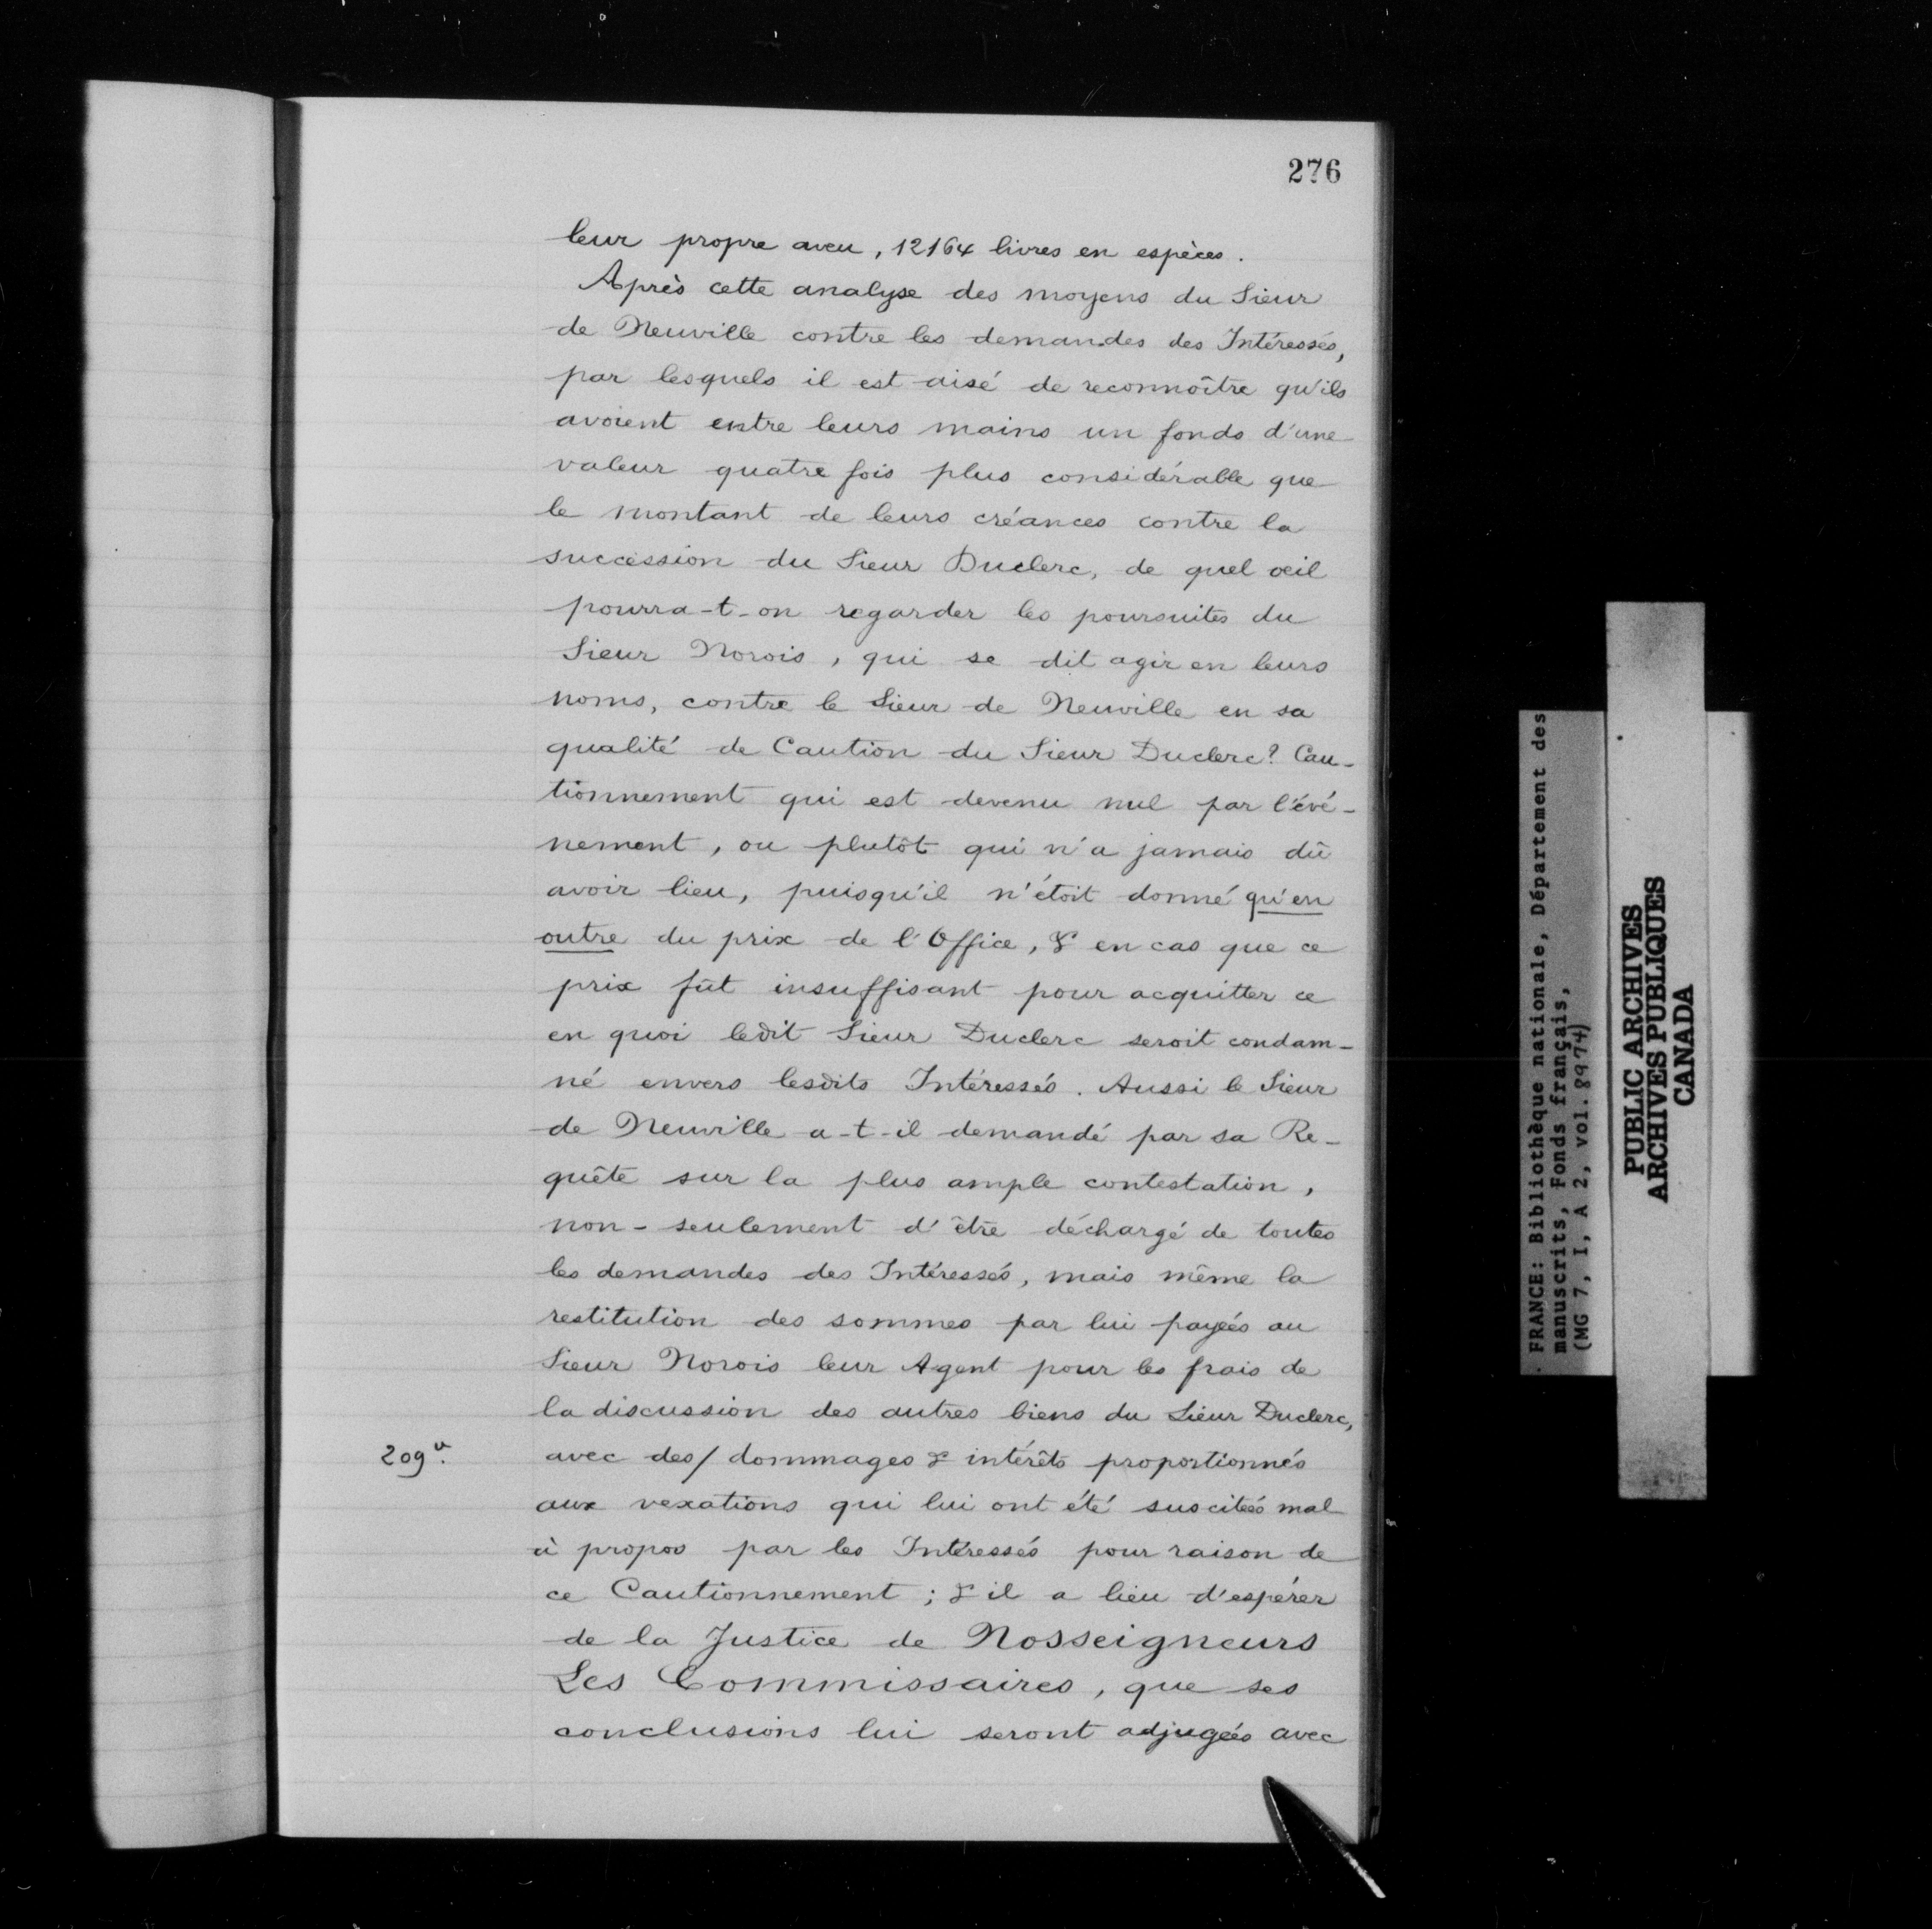 276
leur propre aveu, 12164 livres en espèces.
Après cette analyse des moyens du Sieur
de Neuville contre les demandes des Intéressés,
par lesquels il est aisé de reconnoître qu'ils
avoient entre leurs mains un fonds d'une
valeur quatre fois plus considérable que
le montant de leurs créances contre la
succession du Sieur Duclerc, de quel oeil
pourra-t-on regarder les poursuites du
Sieur Norois, qui se dit agir en leurs
noms, contre le Sieur de Neuville en sa
qualité de Caution du Sieur Duclerc? Cau-
tionnement qui est devenu nul par l'évé-
nement, ou plutôt qui n'a jamais dû
avoir lieu, puisqu'il n'étoit donné qu'en
outre du prix de l'Office, & en cas que ce
prix fût insuffisant pour acquitter ce
en quoi ledit Sieur Duclerc seroit condam-
né envers lesdits Intéressés. Aussi le Sieur
de Neuville a-t-il demandé par sa Re-
quête sur la plus ample contestation,
non-seulement d'être déchargé de toutes
les demandes des Intéressés, mais même la
restitution des sommes par lui payées au
Sieur Norois leur Agent pour les frais de
la discussion des autres biens du Sieur Duclerc,
209v. avec des/ dommages & intérêts proportionnés
aux vexations qui lui ont été suscitées mal
à propos par les Intéressés pour raison de
ce Cautionnement; & il a lieu d'espérer
de la Justice de Nosseigneurs
Les Commissaires, que ses
conclusions lui seront adjugées avec
FRANCE: Bibliothèque nationale, Département des
manuscrits, Fonds français,
(MG 7, I, A 2, vol. 8974)
PUBLIC ARCHIVES
ARCHIVES PUBLIQUES
CANADA